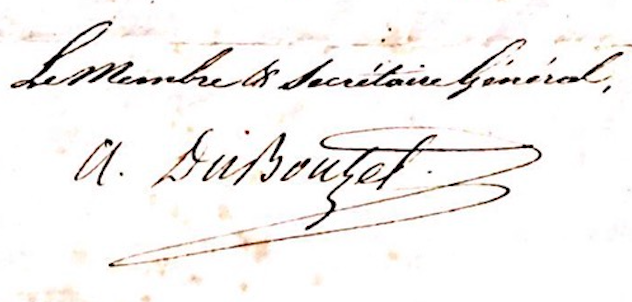 Le Membre & Secrétaire Général,
A. DuBouzet.